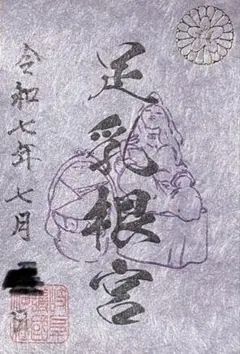 足乳根宮
令和七年七月 日